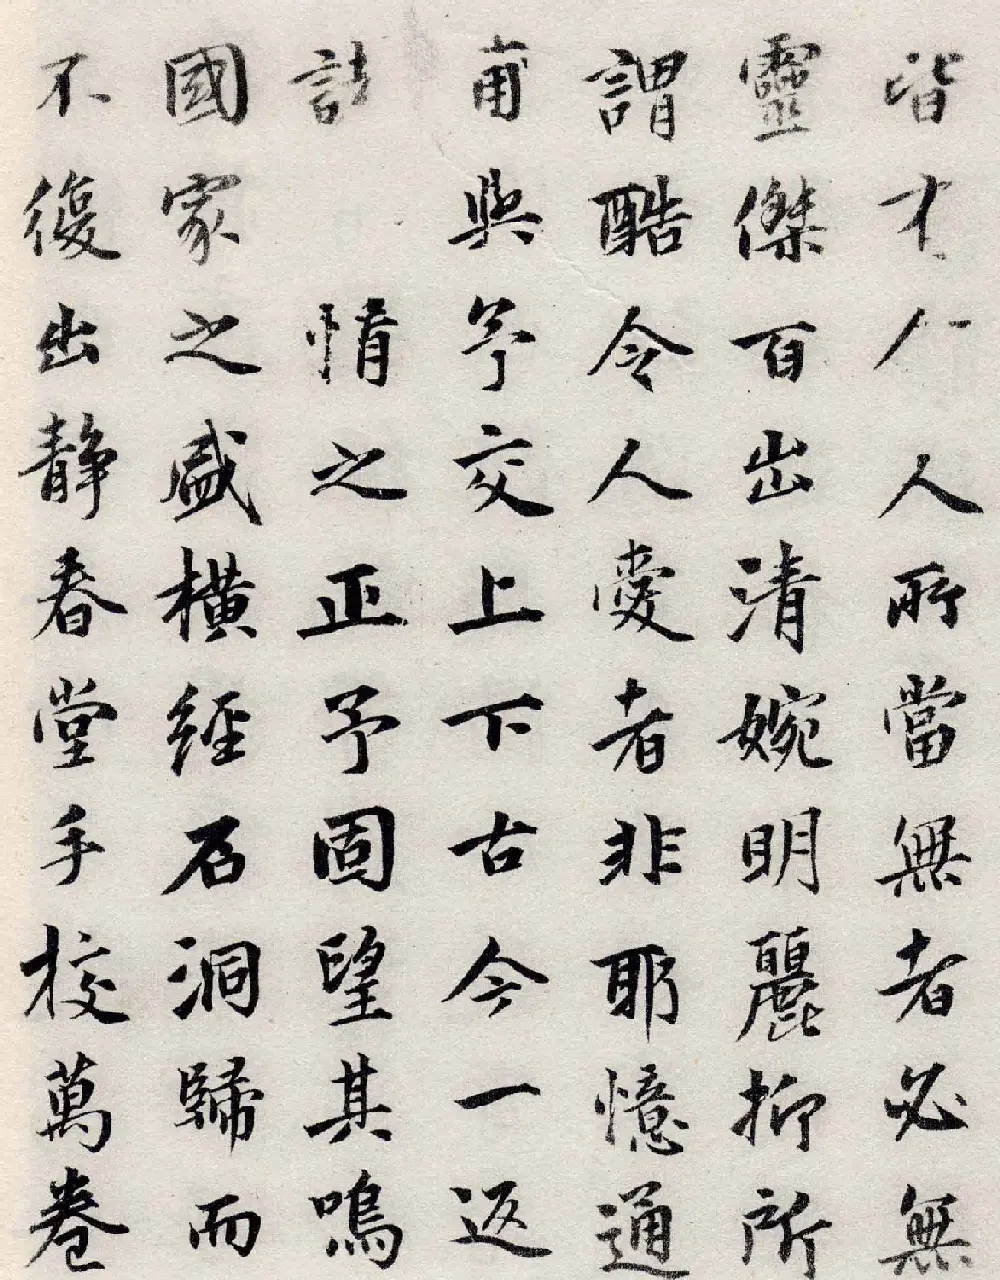 皆才人人所當無者必無
靈傑百出清婉明麗抑所
謂酷令人愛者非耶憶通
甫與予交上下古今一返
詩情之正予固望其鳴
國家之盛橫經石洞歸而
不復出靜春堂手校萬卷